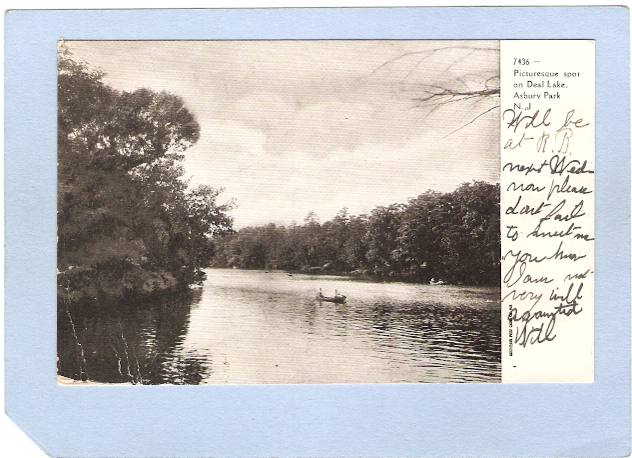 7436 —
Picturesque spot
on Deal Lake.
Asbury Park
N.J
Will be
at R.B.
next Wed
now please
dont fail
to meet me
you know
I am not
very will
acquainted
Will